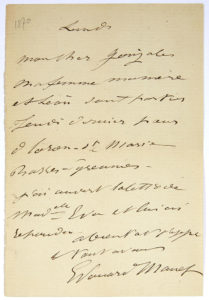 1870
Lundi
mon cher Gonzalès
ma femme ma mère
et Léon sont partis
Jeudi dernier pour
Oloron-Ste Marie
Basses-Pyrénées-
j'ai ouvert la lettre de
Mad elle Eva et lui ai
répondu
a bientot
et tout a vous
Edouard Manet